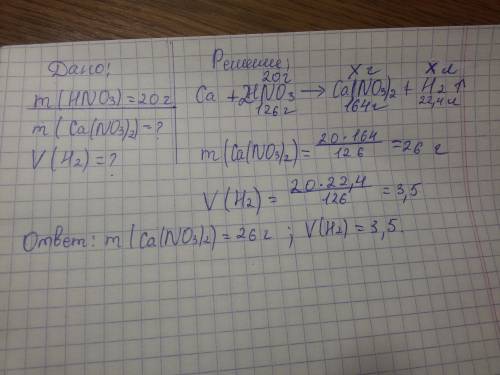 Дано:
m(HNO3)=20г
m(Ca(NO3)2)=?
V(H2)=?
Решение:
20г Xг Xл
Ca + 2HNO3 → Ca(NO3)2 + H2↑
126г 164г 22,4л
m(Ca(NO3)2) = 20·164/126 = 26 г
V(H2) = 20·22,4/126 = 3,5
Ответ: m(Ca(NO3)2) = 26г ; V(H2) = 3,5.